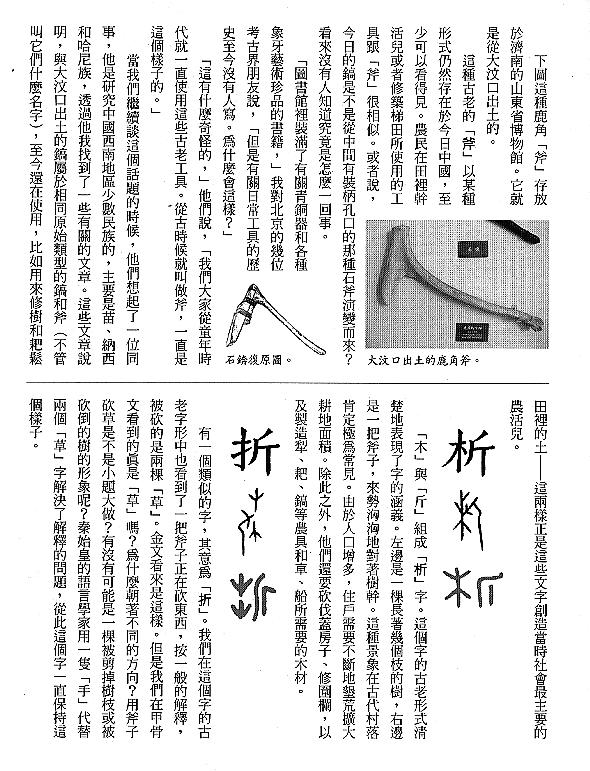 下圖這種鹿角「斧」存放
於濟南的山東省博物館。它就
是從大汶口出土的。
這種古老的「斧」以某種
形式仍然存在於今日中國，至
少可以看得見。農民在田裡幹
活兒或者修築梯田所使用的工
具跟「斧」很相似。或者說，
今日的鎬是不是從中間有裝柄孔口的那種石斧演變而來？
看來沒有人知道究竟是怎麼一回事。
「圖書館裡裝滿了有關青銅器和各種
象牙藝術珍品的書籍，」我對北京的幾位
考古界朋友說，「但是有關日常工具的歷
史至今沒有人寫。爲什麼會這樣？」
「這有什麼奇怪的，」他們說，「我們大家從童年時
代就一直使用這些古老工具。從古時候就叫做斧，一直是
這個樣子的。」
當我們繼續談這個話題的時候，他們想起了一位同
事，他是研究中國西南地區少數民族的，主要是苗、納西
和哈尼族，透過他我找到了一些有關的文章。這些文章說
明，與大汶口出土的鎬屬於相同原始類型的鎬和斧（不管
叫它們什麼名字），至今還在使用，比如用來修樹和耙鬆
大汶口出土的鹿角斧。
石錛復原圖。
田裡的土——這兩樣正是這些文字創造當時社會最主要的
農活兒。
析
「木」與「斤」組成「析」字。這個字的古老形式清
楚地表現了字的涵義。左邊是一棵長著幾個枝的樹，右邊
是一把斧子，來勢洶洶地對著樹幹。這種景象在古代村落
肯定極爲常見。由於人口增多，住戶需要不斷地墾荒擴大
耕地面積。除此之外，他們還要砍伐蓋房子、修圍欄，以
及製造犁、耙、鎬等農具和車、船所需要的木材。
折
有一個類似的字，其意爲「折」。我們在這個字的古
老字形中也看到了一把斧子正在砍東西，按一般的解釋，
被砍的是兩棵「草」。金文看來是這樣。但是我們在甲骨
文看到的眞是「草」嗎？爲什麼朝著不同的方向？用斧子
砍草是不是小題大做？有沒有可能是一棵被剪掉樹枝或被
砍倒的樹的形象呢？秦始皇的語言學家用一隻「手」代替
兩個「草」字解決了解釋的問題，從此這個字一直保持這
個樣子。